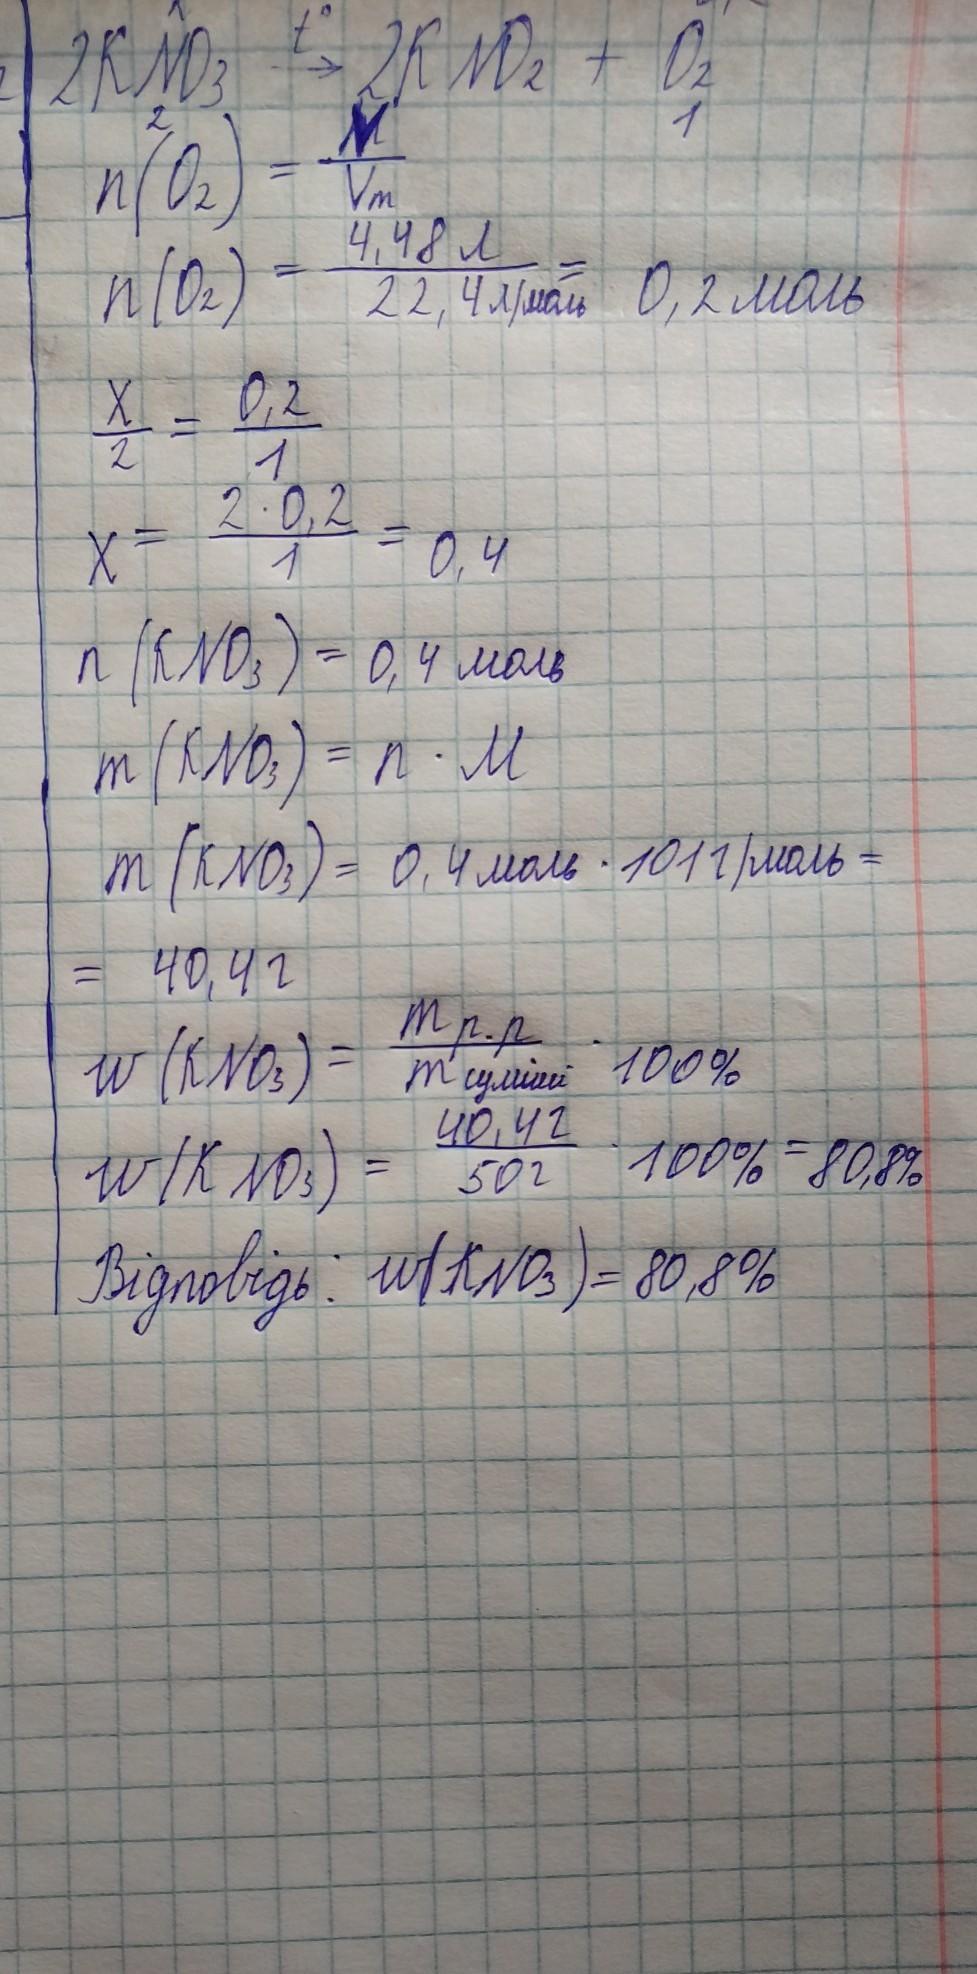 2KNO₃ t° → 2KNO₂ + O₂
2 1
n(O₂) = V/Vm
n(O₂) = 4,48 л / 22,4 л/моль = 0,2 моль
x/2 = 0,2/1
x = 2·0,2/1 = 0,4
n(KNO₃) = 0,4 моль
m(KNO₃) = n · M
m(KNO₃) = 0,4 моль · 101 г/моль =
= 40,4 г
w(KNO₃) = m р.р / m суміші · 100%
w(KNO₃) = 40,4г / 50г · 100% = 80,8%
Відповідь: w(KNO₃) = 80,8%